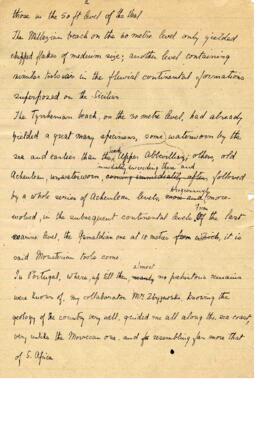 2
those in the 50 ft level of the Vaal.
The Millazian beach on the 60 metre level only yielded
chipped flakes of medium size; another level containing
similar tools was in the fluvial continental formations
superposed on the Sicilian.
The Tyrrhenian beach, on the 30 metre level, had already
yielded a great many specimens, some waterworn by the
sea and earlier than this Upper Abbevillian; others, old
immediately succeeding these and
Acheulean, unwaterworn, coming immediately after, followed
by a whole series of Acheulean levels, more and more
progressively
evolved, in the subsequent continental levels. Of the last
From
marine level, the Grimaldian one at 10 metres from which, it is
said Mousterian tools come.
almost
In Portugal, where, up till then, nearly no prehistoric remains
were known of, my collaborator Mr. Zbyzewski, knowing the
geology of the country very well, guided me all along the sea coast,
very unlike the Moroccan one, and resembling far more that
of S. Africa